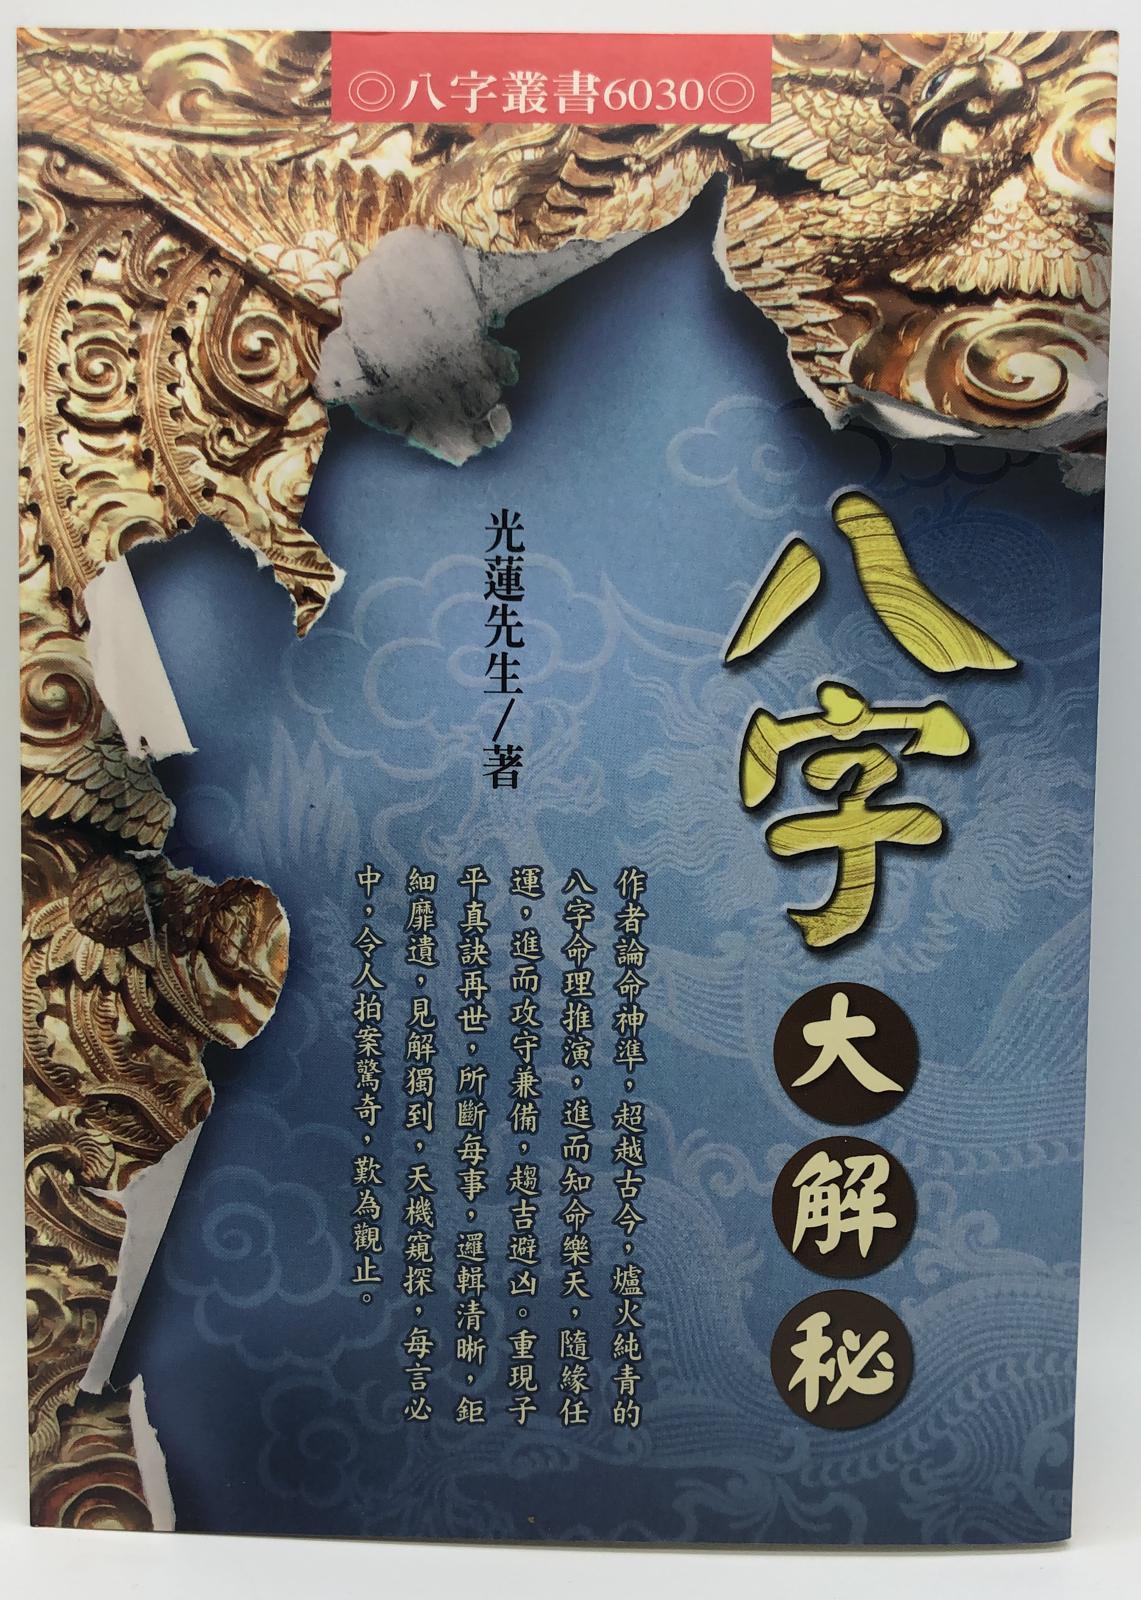 ◎八字叢書6030◎
八字大解秘
光蓮先生/著
作者論命神準，超越古今，爐火純青的
八字命理推演，進而知命樂天，隨緣任
運，進而攻守兼備，趨吉避凶。重現子
平真訣再世，所斷每事，邏輯清晰，鉅
細靡遺，見解獨到，天機窺探，每言必
中，令人拍案驚奇，歎為觀止。